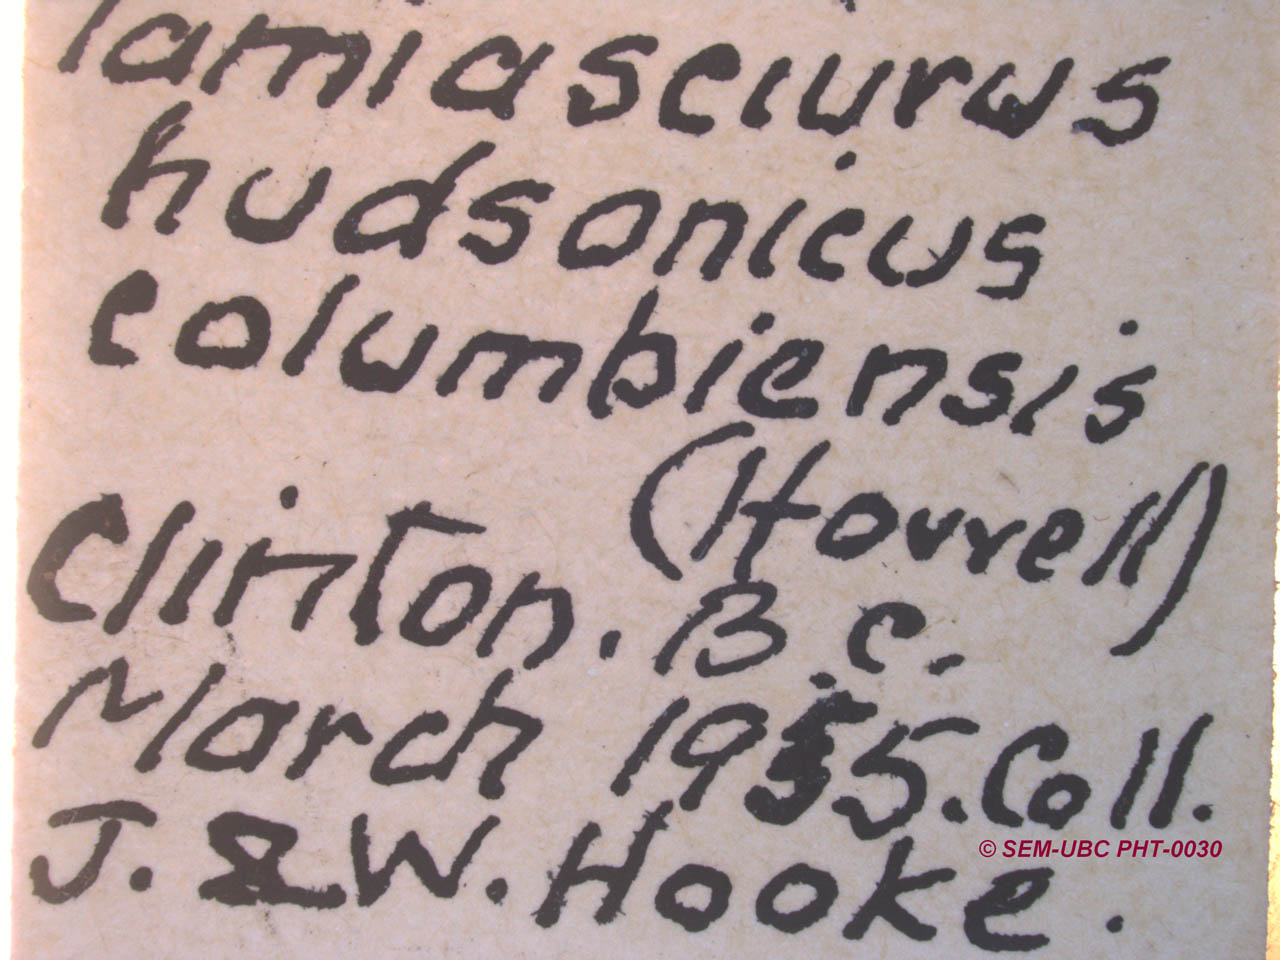 Tamiasciurus
hudsonicus
columbiensis
(Howell)
Clinton. B.C.
March 1935. Coll.
J. & W. Hooke.
© SEM-UBC PHT-0030